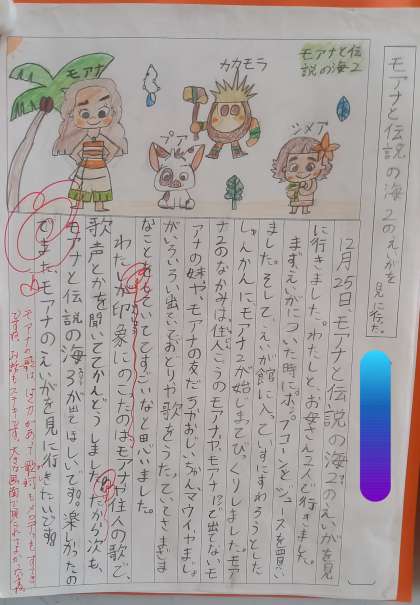 モアナと伝説の海2のえいがを
見に行た。
モアナと伝
説の海2
カカモラ
モアナ
プア
シメア
12月25日モアナと伝説の海2のえいがを見
に行きました。わたしと、お母さん2人で行きました。
まず、えいがについた時にポップコーンとジュースを買い
ました。そして、えいが館に入っていすにすわろうとした
しゅんかんに、モアナ2が始じまってびっくりしました。モア
ナ2のなかみは、住人こうのモアナや、モアナ1で出てないモ
アナの妹や、モアナの友だちやおじいちゃんマウイやまじょ
がいろいろ出ていておどりや歌をうたっていてさまざま
なことをしていてすごいなと思いました。
わたしが印象にのこったのはモアナや住人の歌で、
歌声とかを聞いててかんどうしました。だから次も、
モアナと伝説の海3が出てほしいです。楽しかったの
でまた、モアナのえいがを見に行きたいです。
モアナの歌は、はく力があって、歌詞もメロディもすてき
ですね。お話もステキです。大きな画面で見られてよかったね。